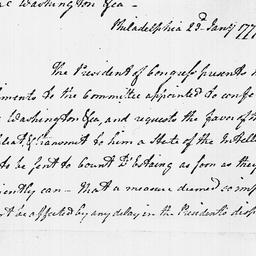 Washington &ca -
Philadelphia 23d. Jany 177
The President of Congress presents h
ments to the Committee appointed to confe
Washington &ca, and requests the favor of th
& transmit to him a State of the Intell
to be sent to Count D'Estaing as soon as they
iently can - that a measure deemed so imp
t be affected by any delay in the Presidents disp